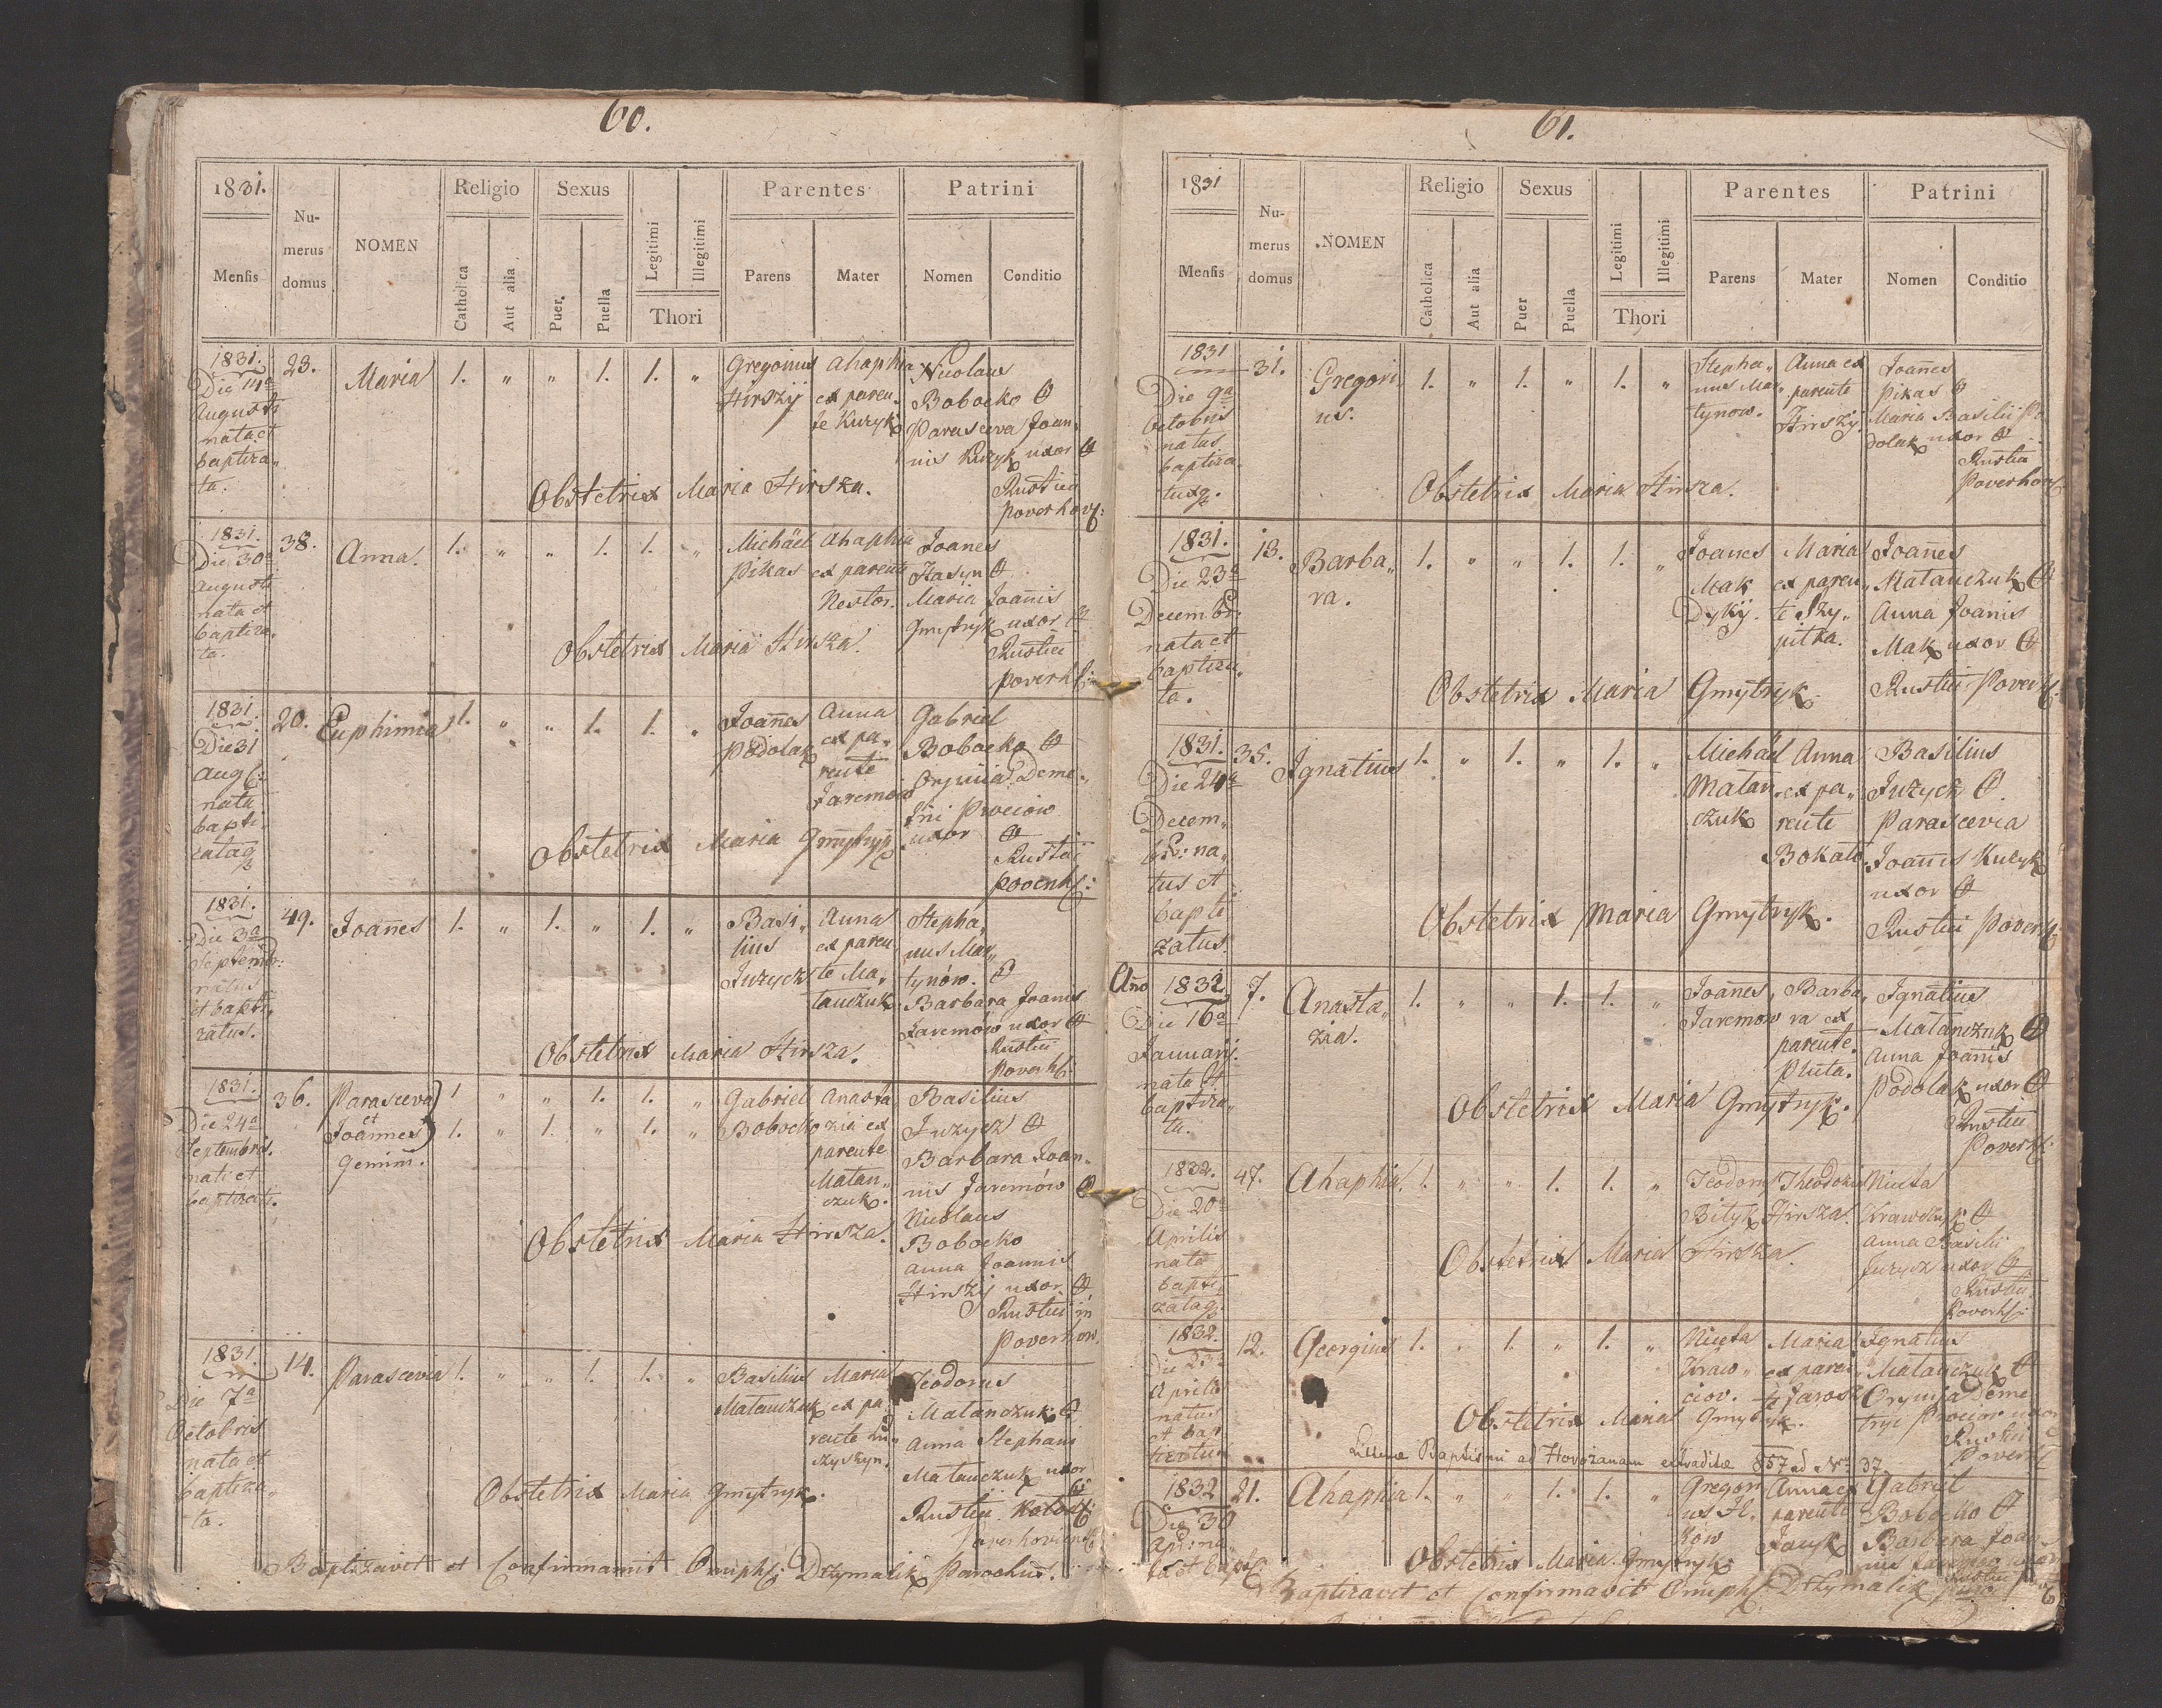 60.
1831.
Mensis
Nu-
merus
domus
NOMEN
Religio
Catholica
Aut alia
Sexus
Puer.
Puella
Legitimi
Illegitimi
Thori
Parentes
Parens
Mater
Patrini
Nomen
Conditio
1831.
Die 14a
Augusti
nata et
baptiza„
ta.
23.
Maria
1. „ „ 1. 1. „
Gregorius
Hirszÿ
Ahaphia
ex paren„
te Kuzyk
Nicolaus
Bobocko
Parasceva Joan„
nis Kuzyk uxor
Rustici
Poverhov:
Obstetrix Maria Hirsza.
1831.
Die 30a
Augusti
nata et
baptiza„
ta.
38.
Anna.
1. „ „ 1. 1. „
Michäel
Pikas
Ahaphia
ex parente
Nestor.
Joanes
Maria Joanis
Gmytryk uxor
Rustici
Poverh:
Obstetrix Maria Hirsza.
1831.
Die 31
Aug:
nata
bapti„
zataq
20.
Euphimia
1. „ „ 1. 1. „
Joannes
Podolak
Anna
ex pa„
rente
Jaremow
Gabriel
Bobocko
Orynia Deme„
trii Prociow
uxor
Rustici
Poverh:
Obstetrix Maria Gmytryk
1831.
Die 3a
Septembr:
natus
et bapti„
zatus.
49.
Joañes
1. „ 1. „ 1. „
Basi„
lius
Juzycz
Anna
ex paren„
te Ma„
tanczuk
Stepha„
nus Mar„
tynów.
Barbara Joanis
Jaremów uxor
Rustici
Poverh:
Obstetrix Maria Hirsza.
1831.
Die 24a
Septembris.
nati et
baptizati.
36.
Parasceva
et
Joannes
Gemini.
1. „ „ 1. 1. „
1. „ 1. „ 1. „
Gabriel
Bobocko
Anasta
zia ex
parente
Matan„
czuk.
Basilius
Juzycz
Barbara Joan„
nis Jaremów
Nicolaus
Bobocko
Anna Joannis
Hirszÿ uxor
Rustici in
Poverhow
Obstetrix Maria Hirsza.
1831.
Die 7a
Octobris
nata et
baptiza„
ta.
14.
Parascevia
1. „ „ 1. 1. „
Basilius
Matanczuk
Maria
ex pa„
rente
Teodorus
Matanczuk
Anna Stephani
Matanczuk uxor
Rustici
Obstetrix Maria Gmytryk.
Baptizavit et Confirmamit Oniph: Drzymalik Parochus.
61.
1831
Mensis
Nu-
merus
domus
NOMEN
Religio
Catholica
Aut alia
Sexus
Puer
Puella
Legitimi
Illegitimi
Thori
Parentes
Parens
Mater
Patrini
Nomen
Conditio
1831
Die 9a
Octobris
natus
baptiza„
tusq.
31.
Gregori
us.
1. „ 1. „ 1. „
Stepha„
nus Mar„
tynow.
Anna ex
parente
Hirszÿ
Joañes
Pikas
Maria Basilii Po
dolak uxor
Rustici
Poverhov:
Obstetrix Maria Hirsza.
1831.
Die 23a
Decembr:
nata et
baptiza„
ta.
13.
Barba„
ra.
1. „ „ 1. 1. „
Joanes
Mak
Dykÿ.
Maria
ex paren„
te Szy„
pitka.
Joañes
Matanczuk
Anna Joanis
Mak uxor
Rustici Poverh:
Obstetrix Maria Gmytryk.
1831.
Die 24a
Decem„
br: na„
tus et
bapti
zatus
35.
Ignatius
1. „ 1. „ 1. „
Michäel
Matan„
czuk
Anna
ex pa„
rente
Bokalo.
Basilius
Juzycz
Parascevia
Joannis Kuzyk
uxor
Rustici Poverh:
Obstetrix Maria Gmytryk.
Año 1832
Die 16a
Januarÿ.
nata et
baptiza„
ta.
7.
Anasta„
zia.
1. „ „ 1. 1. „
Joañes
Jaremow
Barba„
ra ex
parente
Pluta.
Ignatius
Matanczuk
Anna Joannis
Podolak uxor
Rustici
Poverh:
Obstetrix Maria Gmytryk.
1832.
Die 20a
Aprilis
nata
bapti„
zataq:
47.
Ahaphia.
1. „ „ 1. 1. „
Teodorus
Bityk
Theodozia
Hirsza.
Niceta
Krawczyk
Anna Basilii
Juzycz uxor
Rustici.
Poverh:
Obstetrix Maria Hirsza.
1832.
Die 23a
Aprilis
natus
et bap
12.
Georgius
1. „ 1. „ 1. „
Niceta
Maria
ex paren„
te Jarosz
Ignatius
Matanczuk
Orynia Deme
trÿi Prociow uxor
Rustici
Poverh:
Obstetrix Maria Gmytryk.
Baptismi ad Hovozanam extraditæ 857 ad Nr 37
1832
Die 30
21.
Ahaphia
1. „ „ 1. 1. „
Gregori
Anna ex
parente
Gabriel
Bobocko
Barbara Joan„
Obstetrix Maria Gmytryk
Baptizavit et Confirmavit Oniph: Drzymalik